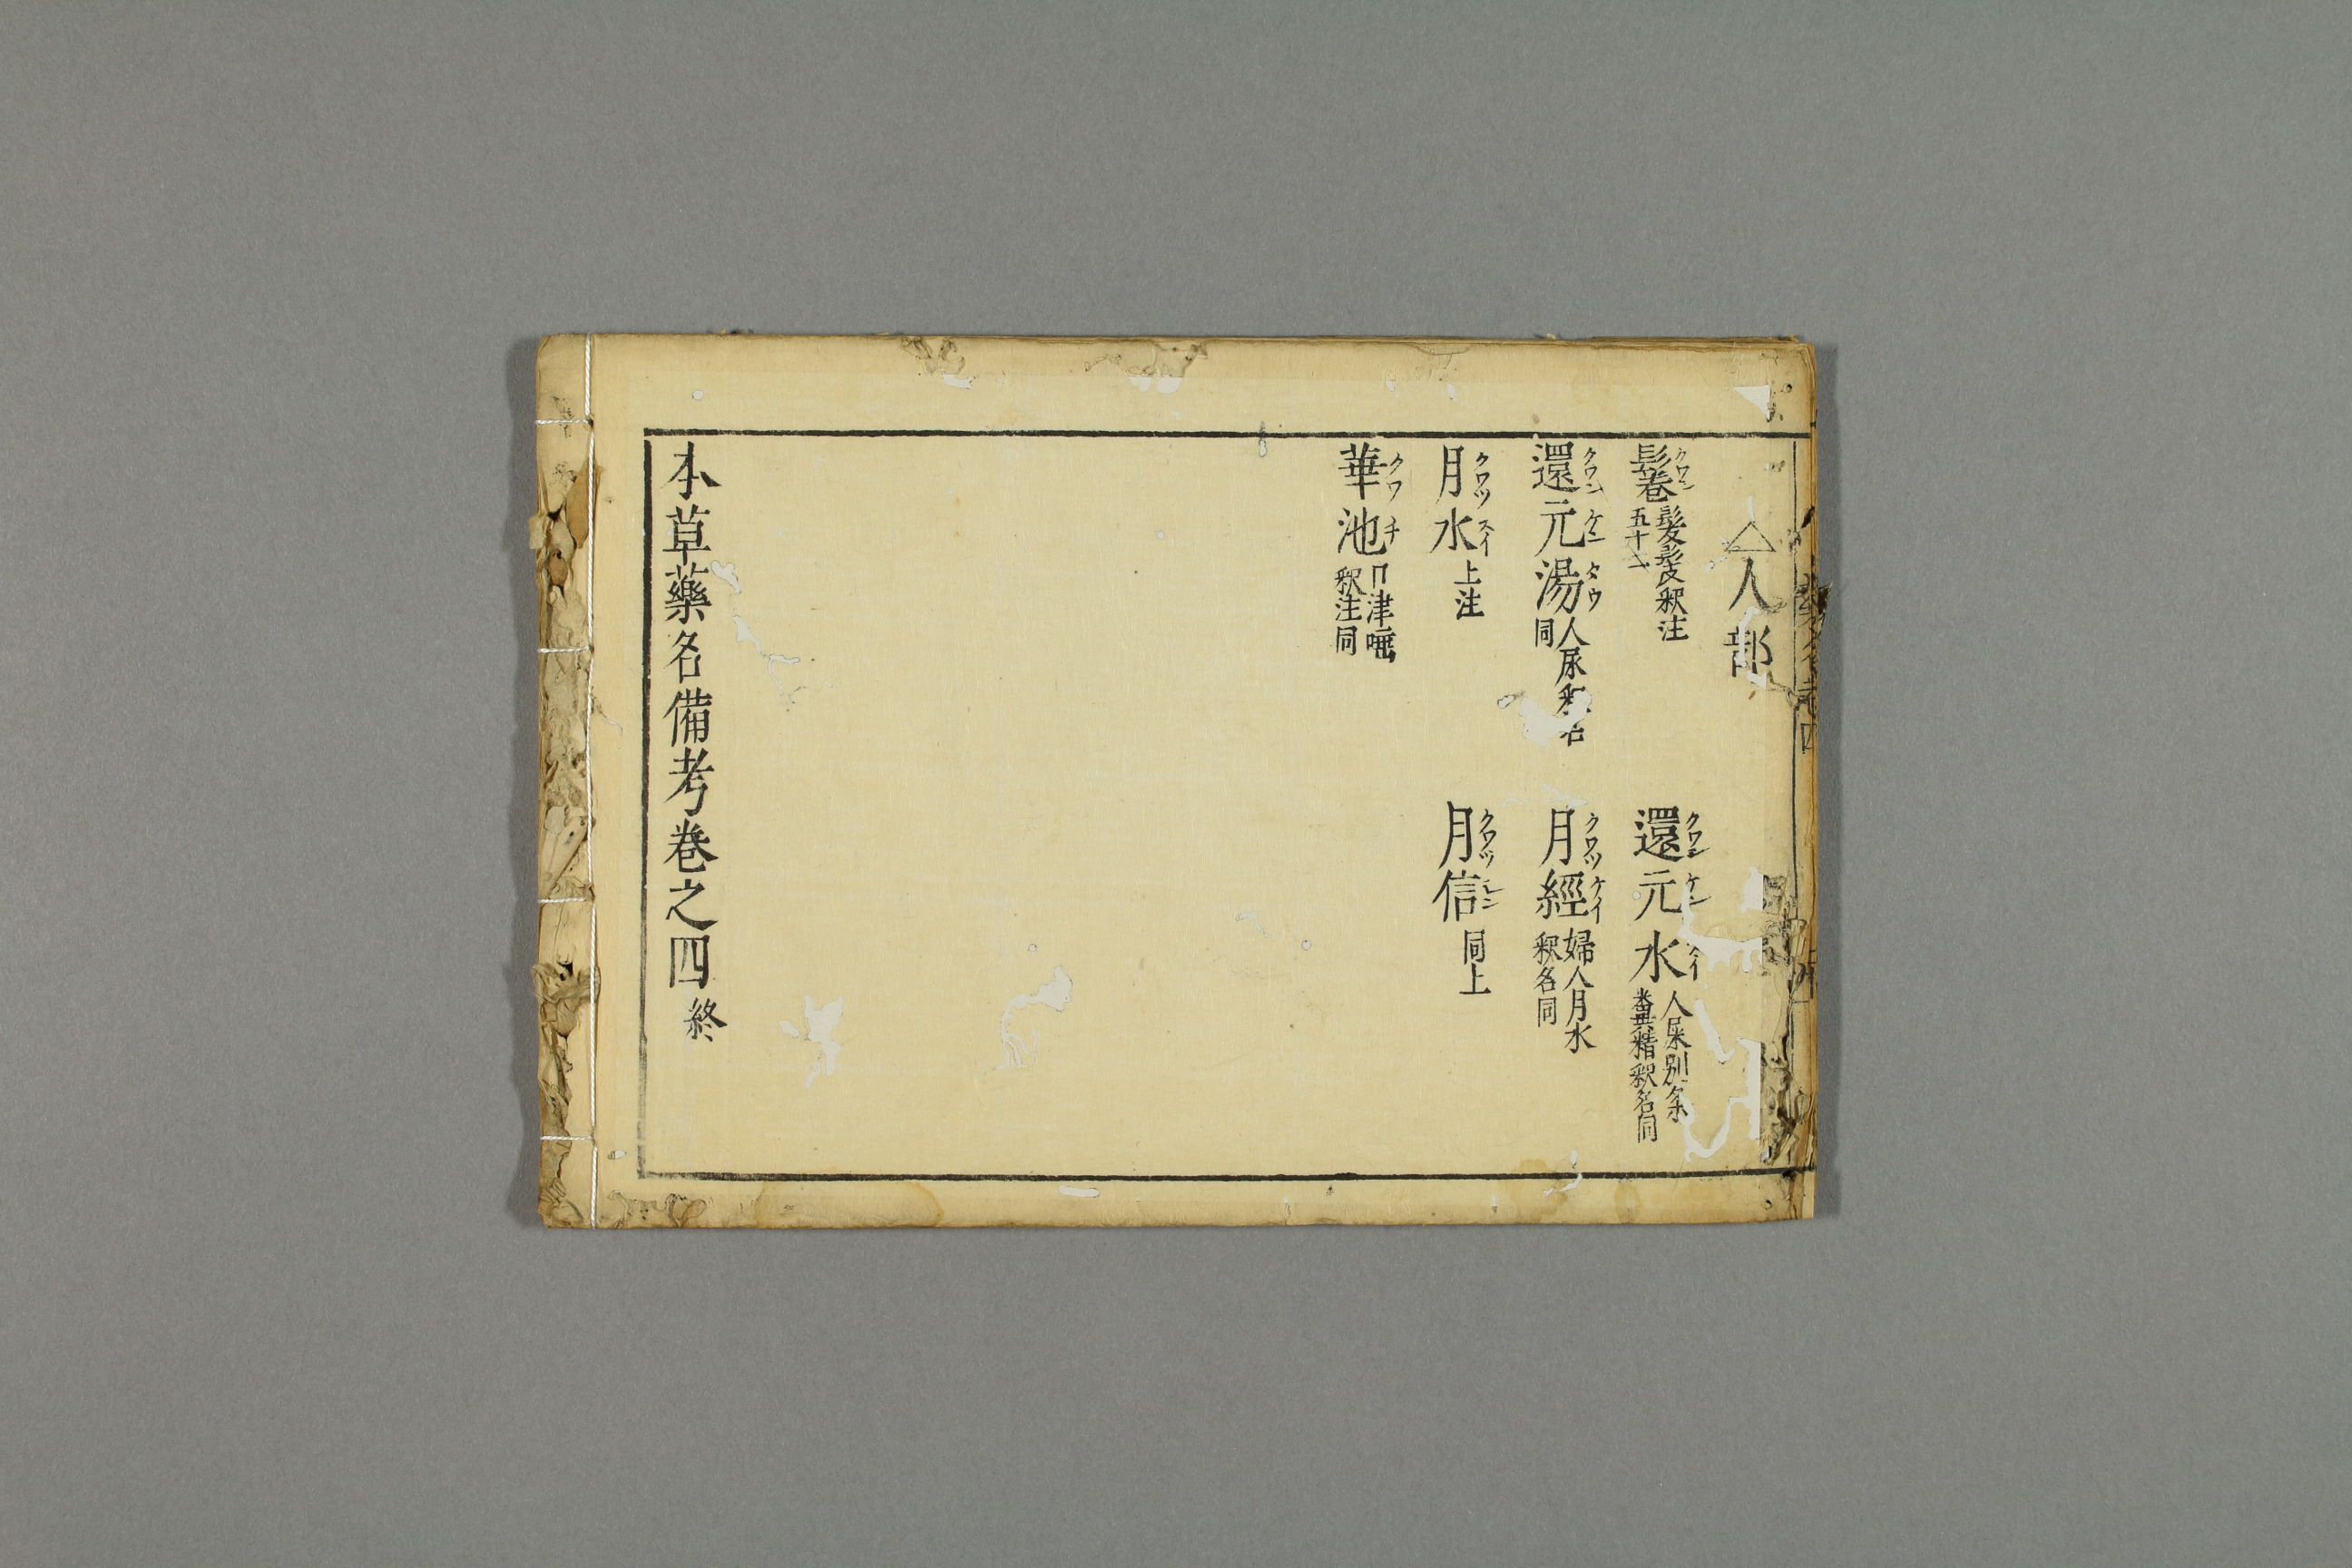 △人部
鬈 クワン 髮髲釈注 五十二
還元水 クワンケンスイ 人屎別条 糞精釈名同
還元湯 クワンケンタウ 人尿釈名 同
月經 クワツケイ 婦人月水 釈名同
月水 クワツスイ 上注
月信 クワツシン 同上
華池 クワチ 口津唾 釈注同
本草藥名備考巻之四 終